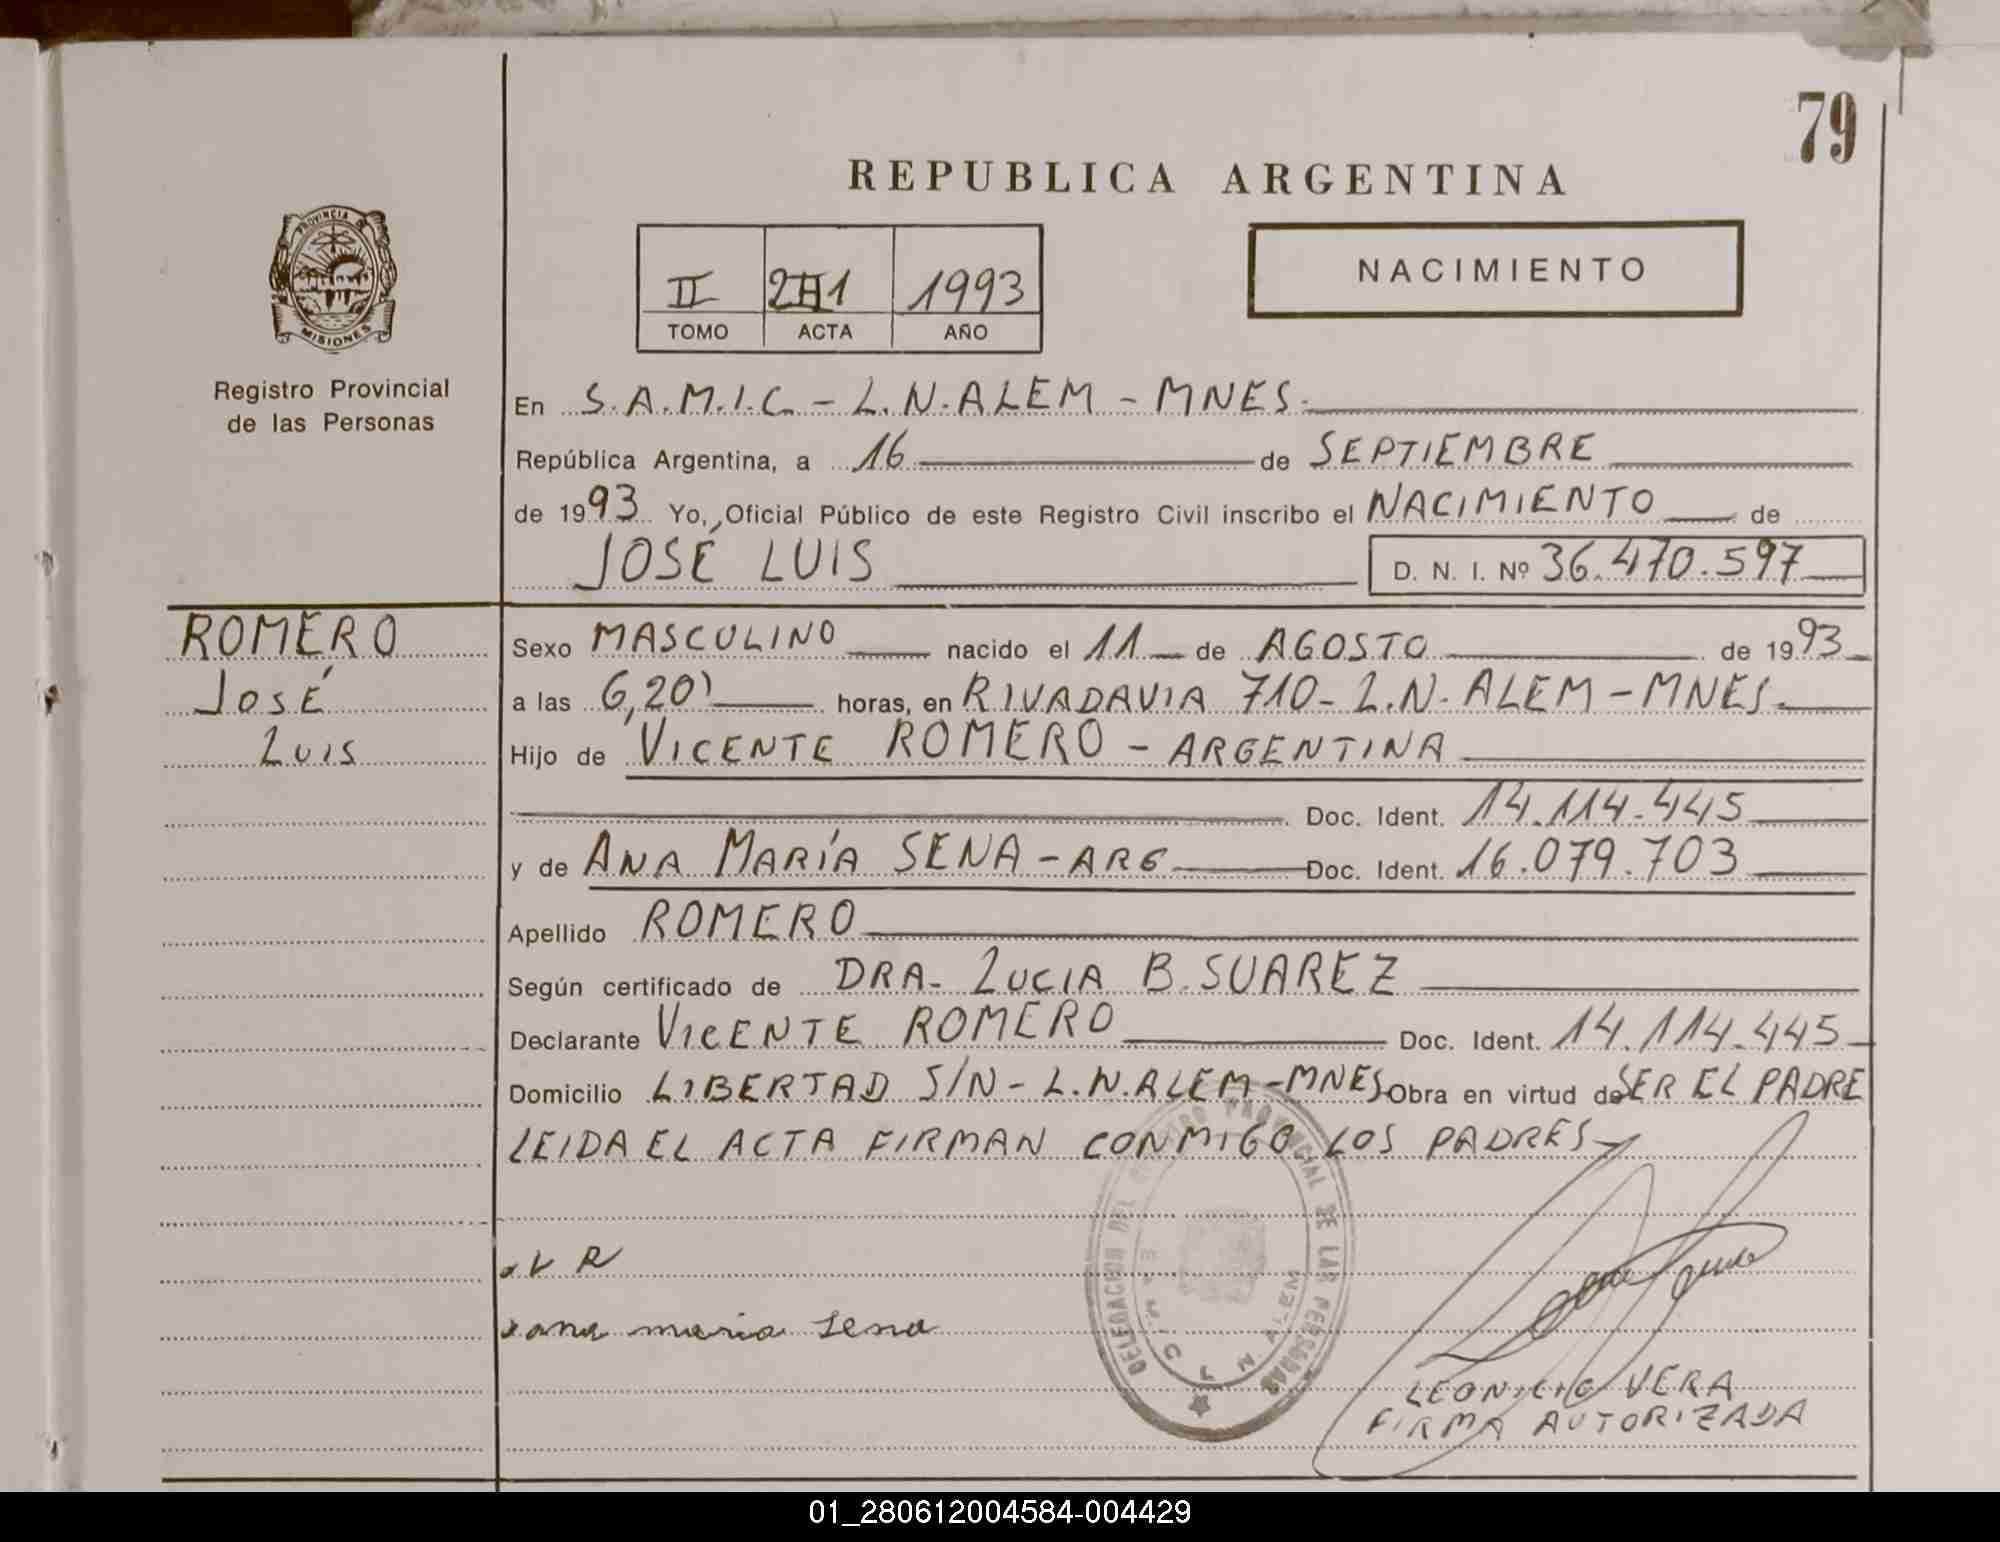 79
REPUBLICA ARGENTINA
PROVINCIA DE
MISIONES
Registro Provincial
de las Personas
II 1993
TOMO ACTA AÑO
NACIMIENTO
En S.A.M.I.C. - L.N.ALEM - MNES.
República Argentina, a 16 de SEPTIEMBRE
de 1993 Yo, Oficial Público de este Registro Civil inscribo el NACIMIENTO de
JOSÉ LUIS D. N. I. Nº 36.470.597
ROMERO
José
Luis
Sexo MASCULINO nacido el 11 de AGOSTO de 1993
a las 6,20' horas, en RIVADAVIA 710- L.N. ALEM - MNES.
Hijo de VICENTE ROMERO - ARGENTINA
Doc. Ident. 14.114.445
y de ANA MARÍA SENA - ARG Doc. Ident. 16.079.703
Apellido ROMERO
Según certificado de DRA. LUCIA B. SUAREZ
Declarante VICENTE ROMERO Doc. Ident. 14.114.445
Domicilio LIBERTAD S/N - L.N.ALEM - MNES. Obra en virtud de SER EL PADRE
LEIDA EL ACTA FIRMAN CONMIGO LOS PADRES
x V R
x ana maria Sena
DELEGACION DEL REGISTRO PROVINCIAL DE LAS PERSONAS
ALEM
LEONICIO VERA
FIRMA AUTORIZADA
01_280612004584-004429